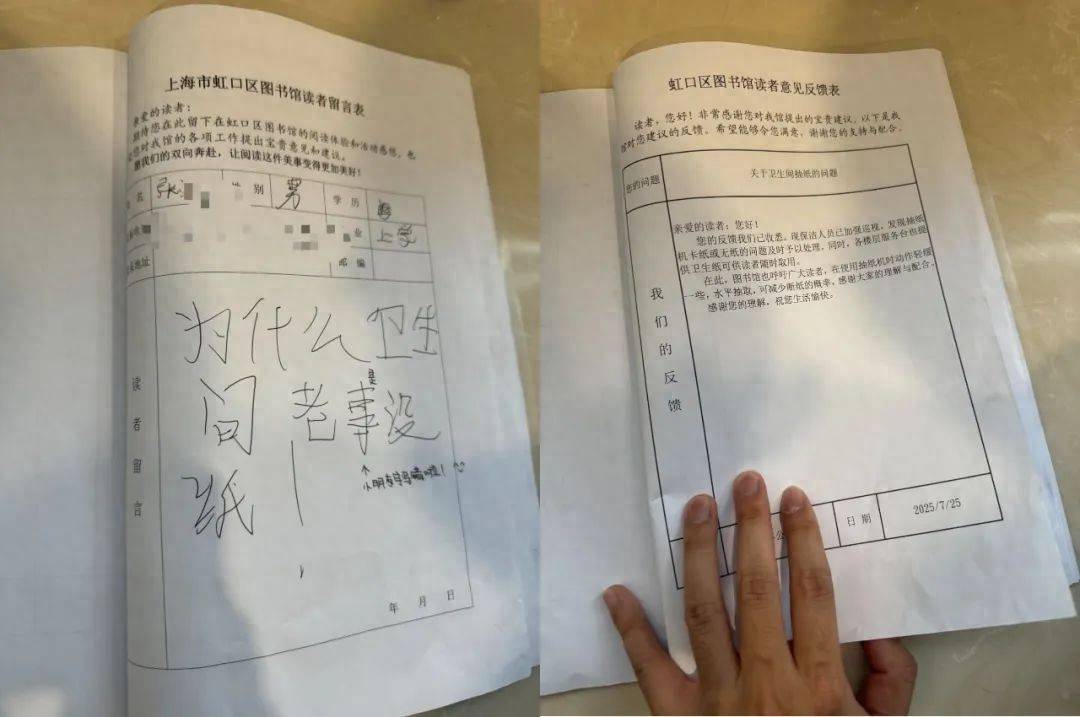 上海市虹口区图书馆读者留言表
亲爱的读者：
期待您在此留下在虹口区图书馆的阅读体验和活动感想，也
您对我馆的各项工作提出宝贵意见和建议。
我们的双向奔赴，让阅读这件美事变得更加美好！
名 张 别 男 学历
业 上学
地址 邮编
读者留言
为什么卫生
间老事没
是
纸！
↑
小朋友写错啦！
年 月 日
虹口区图书馆读者意见反馈表
读者，您好！非常感谢您对我馆提出的宝贵建议，以下是我
馆对您建议的反馈。希望能够令您满意，谢谢您的支持与配合。
您的问题 关于卫生间抽纸的问题
我们的反馈
亲爱的读者：您好！
您的反馈我们已收悉。现保洁人员已加强巡视，发现抽纸
机卡纸或无纸的问题及时予以处理，同时，各楼层服务台也提
供卫生纸可供读者随时取用。
在此，图书馆也呼吁广大读者，在使用抽纸机时动作轻缓
一些，水平抽取，可减少断纸的概率，感谢大家的理解与配合。
感谢您的理解，祝您生活愉快。
日期 2025/7/25